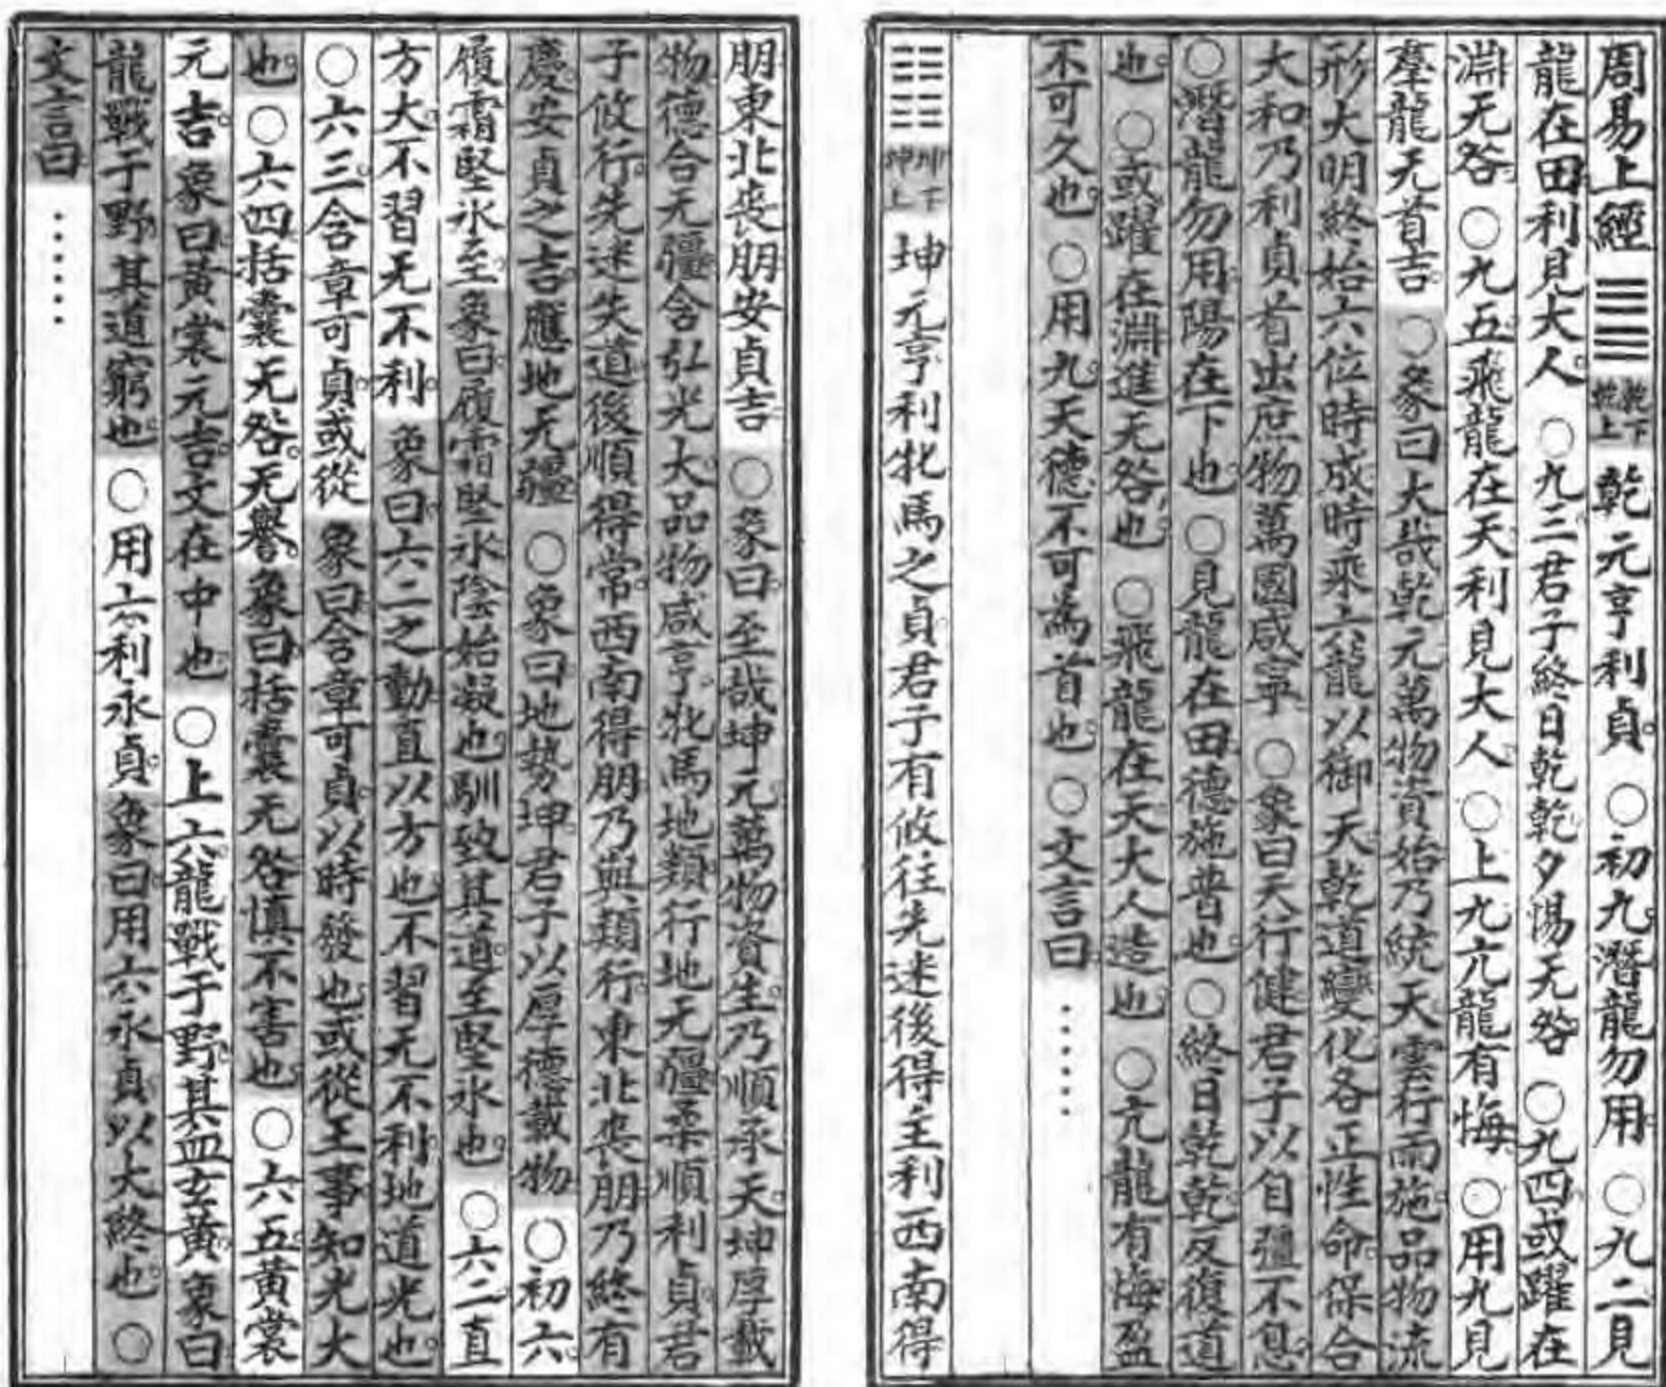 周易上經 ䷀ 乾下乾上 乾元亨利貞。○初九潛龍勿用。○九二見
龍在田利見大人。○九三君子終日乾乾夕惕无咎。○九四或躍在
淵无咎。○九五飛龍在天利見大人。○上九亢龍有悔。○用九見
羣龍无首吉。○彖曰大哉乾元萬物資始乃統天雲行而施品物流
形大明終始六位時成時乘上龍以御天乾道變化各正性命。保合
大和乃利貞首出庶物萬國咸寧○象曰天行健君子以自彊不息。
○潛龍勿用陽在下也。○見龍在田德施普也。○終日乾乾反復道
也。○或躍在淵進无咎也。○飛龍在天大人造也。○亢龍有悔盈
不可久也。○用九天德不可為首也。○文言曰。……
䷁ 坤下坤上 坤元亨利牝馬之貞君子有攸往先迷後得主利西南得
朋東北喪朋安貞吉。○彖曰。至哉坤元萬物資生乃順承天。坤厚載
物。德合无疆含弘光大。品物咸亨。牝馬地類行地无疆柔順利貞君
子攸行。先迷失道後順得常。西南得朋乃與類行。東北喪朋乃終有
慶。安貞之吉應地无疆○象曰地勢坤。君子以厚德載物○初六。
履霜堅氷至。象曰履霜堅氷陰始凝也馴致其道。至堅氷也。○六二。直
方大。不習无不利。象曰。六二之動。直以方也不習无不利。地道光也。
○六三含章可貞。或從 象曰含章可貞。以時發也。或從王事知光大
也。○六四括囊无咎。无譽。象曰。括囊无咎慎不害也。○六五。黃裳
元吉。象曰黃裳元吉。文在中也。○上六龍戰于野。其血玄黃。象曰
龍戰于野其道窮也。○用六利永貞。象曰用六永貞以大終也。○
文言曰……